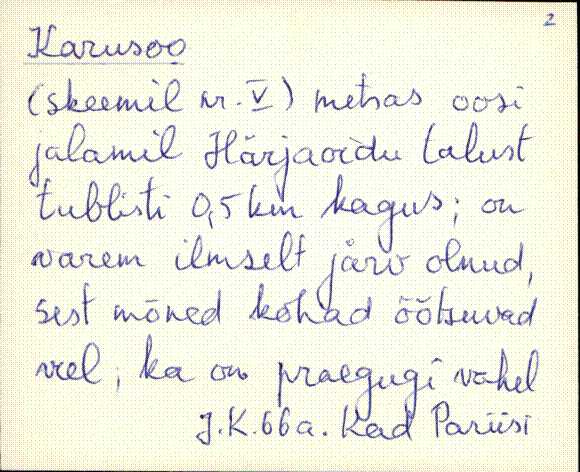 2
Karusoo
(skeemil nr. V) metsas oosi
jalamil Härjaoidu talust
tublisti 0,5 km kagus; on
varem ilmselt järv olnud,
sest mõned kohad õõtsuvad
veel; ka on praegugi vahel
J.K. 66 a. Kad Pariisi